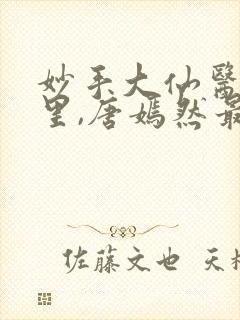 妙手大仙醫
里,唐嫣然最
佐藤文也 天